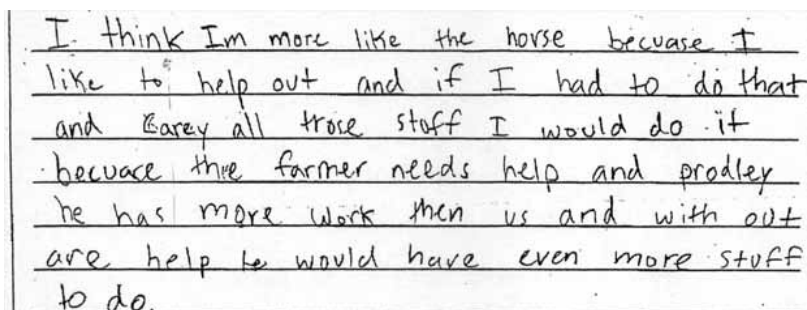 I think Im more like the horse becuase I
like to help out and if I had to do that
and Carey all those stoff I would do it
becuace thre farmer needs help and prodley
he has more work then us and with out
are help he would have even more stuff
to do.